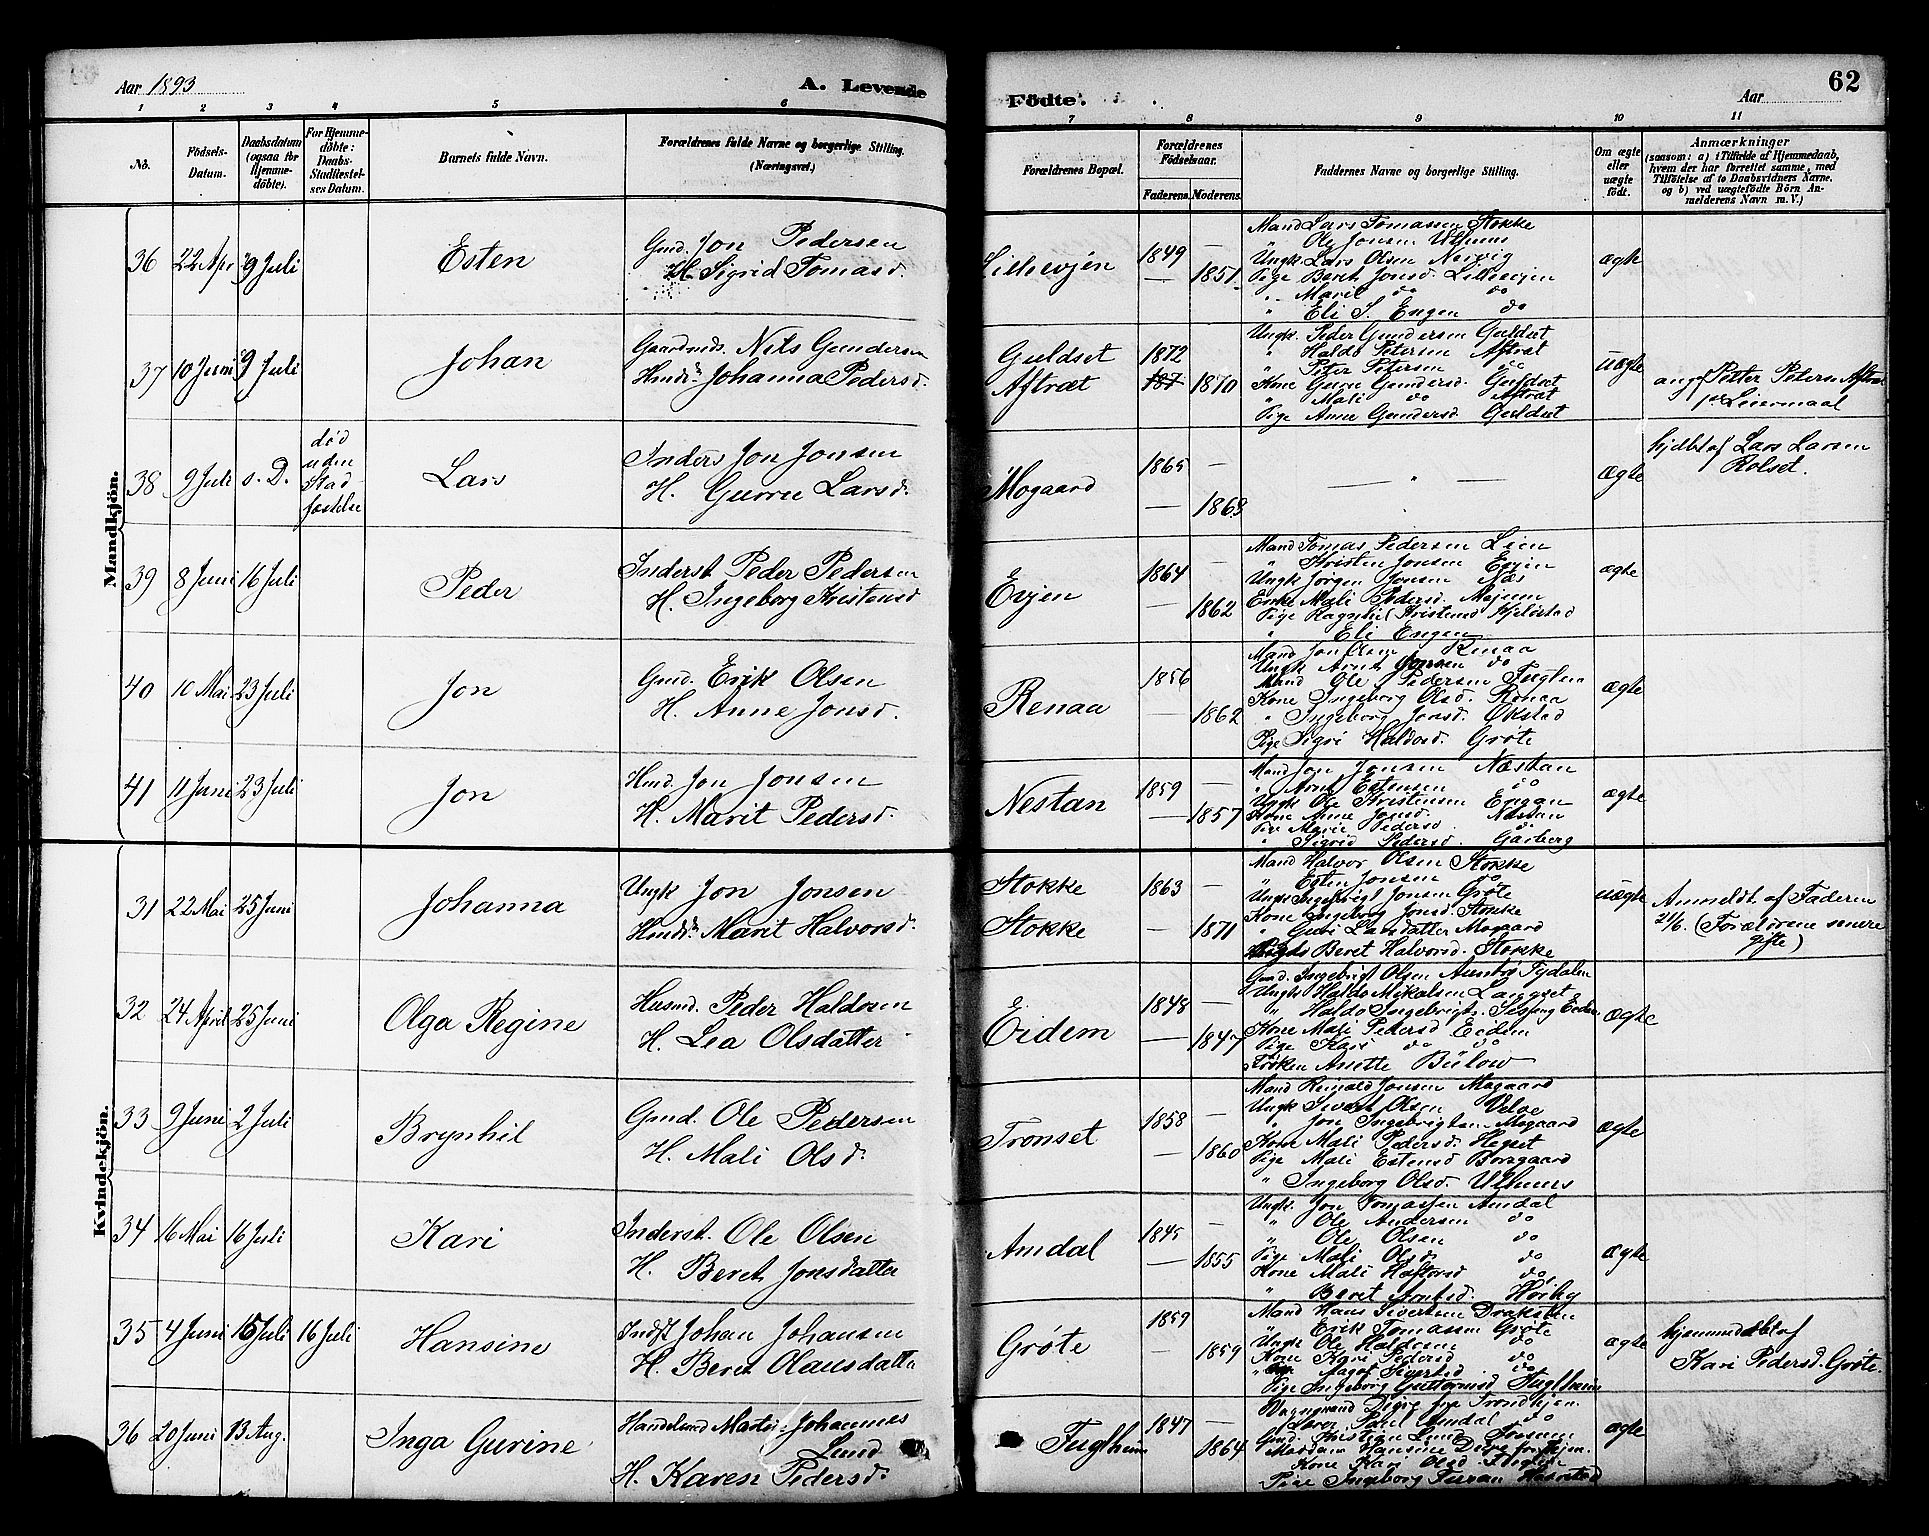 Aar 1893
A. Levende
Födte.
Aar
62
1 2 3 4 5 6 7 8 9 10 11
No.
Födsels-
Datum.
Daabsdatum
(ogsaa for
Hjemme-
döbte).
For Hjemme-
döbte:
Daabs-
Stadfæstel-
ses Datum.
Barnets fulde Navn.
Forældrenes fulde Navne og borgerlige Stilling.
(Næringsvei.)
Forældrenes Bopæl.
Forældrenes
Födselsaar.
Faderens. Moderens.
Faddernes Navne og borgerlige Stilling.
Om ægte
eller
uægte
födt.
Anmærkninger
(saasom: a) i Tilfælde af Hjemmedaab,
hvem der har forrettet samme, med
Tilföielse af to Daabsvidners Navne,
og b) ved uægtefödte Börn An-
melderens Navn m. V.)
Mandkjön.
36 22 Apr 9 Juli
Esten
Gmd. Jon Pedersen
H. Sigrid Tomasd.
Lillevjen
1849 —
— 1851
Mand Lars Tomassen Stokke
" Ole Jonsen Ulhuus
Ungk. Lars Olsen Nervig
Pige Beret Jonsd. Lillevjen
" Marit do do
" Eli S. Engen do
ægte
37 10 Juni 9 Juli
Johan
Gaardmds. Nils Gundersen
Hmdd. Johanna Pedersd.
Guldset
Aftræt
1872
187 1870
Ungk. Peder Gundersen Guldset
" Haldo Petersen Aftræt
" Peter Petersen do
Kone Gurre Gundersd. Guldset
" Mali do Aftræt
Pige Anne Gundersd. Guldset
uægte
ang. Petter Petersen Aftræt
for Leiermaal
38 9 Juli s. D.
død
uden
Stad-
fæstelse
Lars
Inders Jon Jonsen
H. Gurru Larsd.
Mogaard
1865 —
— 1868
— " —
ægte
hjdbt af Lars Larsen
Rolset.
39 8 Juni 16 Juli
Peder
Inderst Peder Pedersen
H. Ingeborg Kristensd
Evjen
1864 —
— 1862
Mand Tomas Pedersen Lien
" Kristen Jonsen Evjen
Ungk Jørgen Jonsen Næs
Enke Mali Pedersd. Mojeen
Pige Ragnhil Kristensd Kjelstad
" Eli Engen
ægte
40 10 Mai 23 Juli
Jon
Gmd. Erik Olsen
H. Anne Jonsd.
Renaa
1856 —
— 1862
Mand Jon Olsen Renaa
Ungk Arnt Jonsen do
Mand Ole Pedersen Fuglem
Kone Ingeborg Olsd. Renaa
" Ingeborg Jonsd. Evjestad
Pige Sigri Haldosd. Grøte
ægte
41 11 Juni 23 Juli
Jon
Hmd. Jon Jonsen
H. Marit Pedersd.
Nestan
1859 —
— 1857
Mand Jon Jonsen Næstan
" Arnt Estensen do
Ungk Ole Kristensen Engan
Kone Anne Jonsd. Næstan
Pige Marit Pedersd. do
" Sigrid Pedersd. Garberg
ægte
Kvindekjön.
31 22 Mai 25 Juni
Johanna
Ungk Jon Jonsen
Hmdd. Marit Halvorsd.
Stokke
Stokke
1863 —
— 1871
Mand Halvor Olsen Stokke
" Esten Jonsen do
Ungk Ingebrigt Jonsen Grøte
Kone Ingeborg Jonsd. Stokke
" Guri Larsdatter Mogaard
Pige Beret Halvorsd. Stokke
uægte
Anmeldt af Faderen
21/6. (Forældrene senere
gifte)
32 24 April 25 Juni
Olga Regine
Husmd. Peder Haldosen
H. Lea Olsdatter
Eidem
1848 —
— 1847
Gmd. Ingebrigt Olsen Aunbog Tydalen
Ungk Haldo Mikalsen Langset
" Haldo Ingebrigts. Eidem
Kone Mali Pedersd Eidem
Pige Kari do do
Frøken Anette Bülow
ægte
33 9 Juni 2 Juli
Brynhil
Gmd. Ole Pedersen
H. Mali Olsd.
Tronset
1858 —
— 1860
Mand Reinald Jonsen Mogaard
Ungk Sivert Olsen Velve
" Jon Ingebrigtsen Mogaard
Kone Mali Pedersd. Hegset
Pige Mali Estensd Borsgaard
" Ingeborg Olsd. Ulhuus
ægte
34 16 Mai 16 Juli
Kari
Inderst. Ole Olsen
H. Beret Jonsdatter
Amdal
1845 —
— 1855
Ungk. Jon Tomassen Amdal
" Ole Andersen do
" Ole Olsen do
Pige Mali Olsd. do
Kone Mali Haftorsd do
" Beret Arntsd. Hørby
ægte
35 4 Juni 16 Juli 16 Juli
Hansine
Indst Johan Johansen
H. Beret Olausdatter
Grøte
1859
1859
Mand Hans Sivertsen Draksten
" Erik Tomassen Grøte
Ungk Ole Haldosen do
Kone Kari Pedersd do
" Maret Sivertsd do
Pige Ingeborg Guttormsd Fuglheim
ægte
hjemmedøbt af
Kari Pedersd. Grøte.
36 20 Juni 13 Aug.
Inga Gurine
Handelsmd Martin Johannes
Lund
H. Karen Pedersd.
Fuglheim
1847 —
1864
Vognmand Digre fra Trondhjem
Lærer Paul Amdal do
Gmd. Kristian Lund
Madam Hansine Digre fra Thjem.
Kone Kari Olsd. Fuglem
Pige Ingeborg
ægte